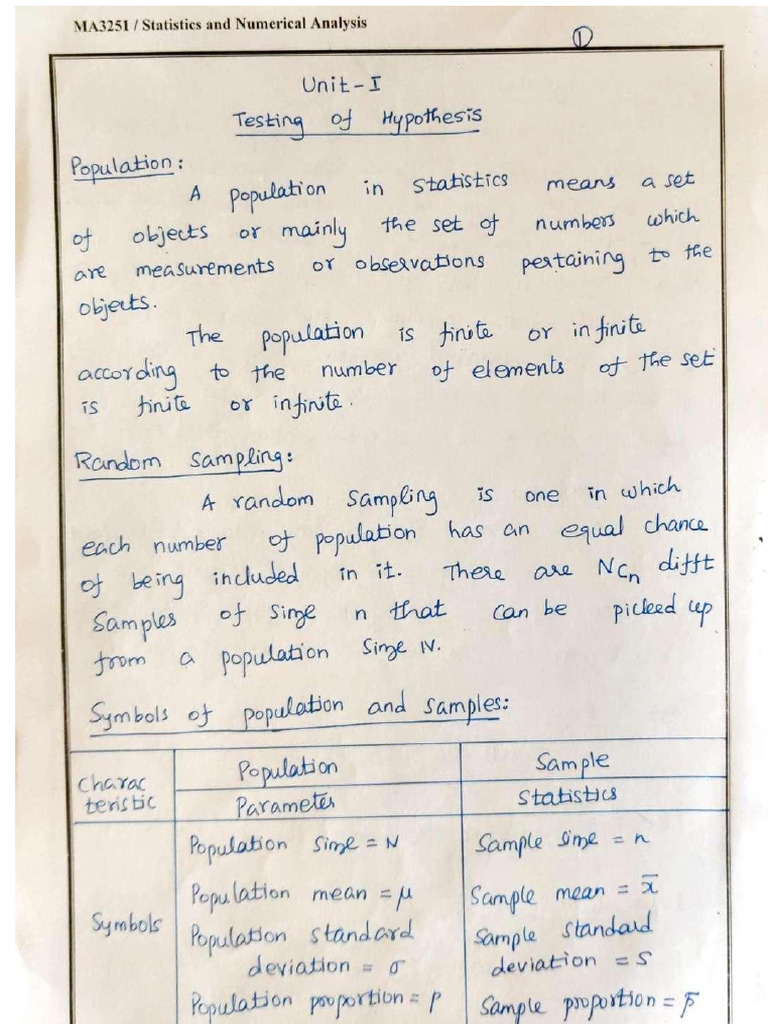 MA3251 / Statistics and Numerical Analysis
1
Unit-I
Testing of Hypothesis
Population:
A population in Statistics means a set
of objects or mainly the set of numbers which
are measurements or observations pertaining to the
objects.
The population is finite or infinite
according to the number of elements of the set
is finite or infinite.
Random Sampling:
A random Sampling is one in which
each number of population has an equal chance
of being included in it. There are NCn difft
Samples of size n that can be picked up
from a population Size N.
Symbols of population and samples:
Charac
teristic
Population
Sample
Parameter
Statistics
Symbols
Population Size = N
Sample Size = n
Population mean = μ
Sample mean = x̄
Population standard
deviation = σ
Sample standard
deviation = S
Population proportion = P
Sample proportion = p̄